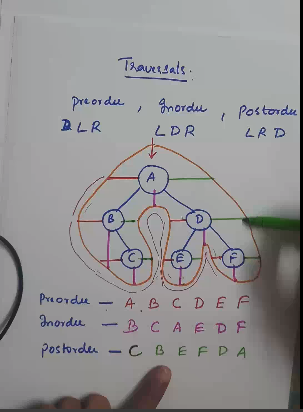 Traversals.
Preorder , Inorder , Postorder
DLR LDR LRD
A
B D
C E F
Preorder – A B C D E F
Inorder – B C A E D F
Postorder – C B E F D A